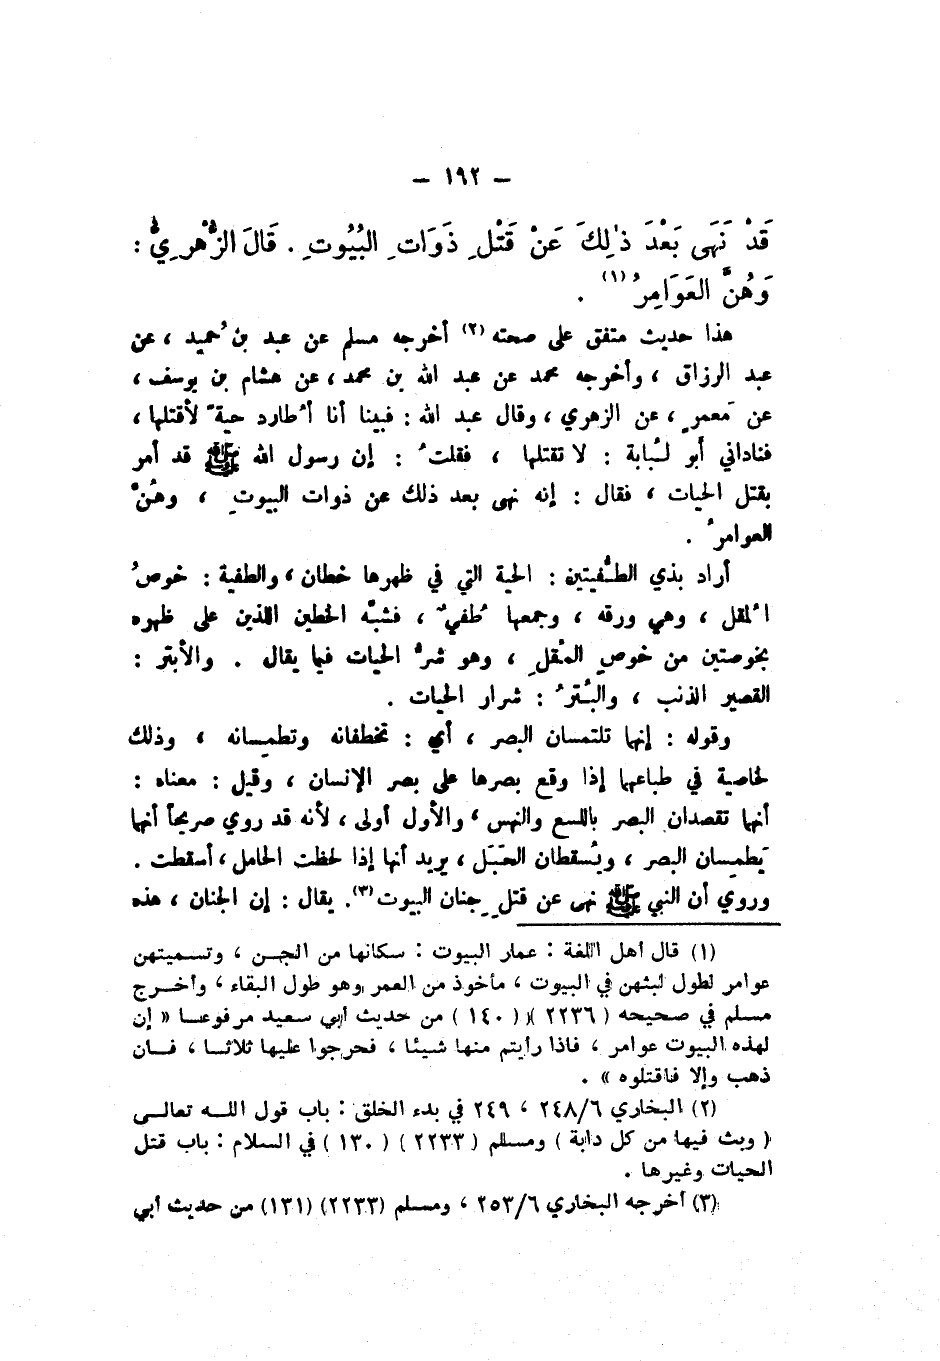 – ١٩٢ –
قَدْ نَهَى بَعْدَ ذٰلِكَ عَنْ قَتْلِ ذَوَاتِ البُيُوتِ . قَالَ الزُّهْرِيُّ :
وَهُنَّ العَوَامِرُ (١) .
هذا حديث متفق على صحته (٢) أخرجه مسلم عن عبد بن حُميد ، عن
عبد الرزاق ، وأخرجه محمد عن عبد الله بن محمد ، عن هشام بن يوسف ،
عن مَعمرٍ ، عن الزهري ، وقال عبد الله : فبينا أنا أُطارد حيةً لأقتلها ،
فناداني أَبو لُبابة : لا تقتلها ، فقلتُ : إن رسول الله ﷺ قد أمر
بقتل الحيات ، فقال : إنه نهى بعد ذلك عن ذوات البيوتِ ، وهُنَّ
العوامرُ .
أراد بذي الطُّفيتين : الحية التي في ظهرها خطان ، والطفية : خوصُ
المُقل ، وهي ورقه ، وجمعها طُفيٌ ، فشبَّه الخطين اللذين على ظهره
بخوصتين من خوصِ المُقلِ ، وهو شرُّ الحيات فيما يقال . والأبتر :
القصير الذنب ، والبُترُ : شرار الحيات .
وقوله : إنها تلتمسان البصر ، أي : تخطفانه وتطمسانه ، وذلك
لخاصية في طباعها إذا وقع بصرها على بصر الإنسان ، وقيل : معناه :
أنها تقصدان البصر باللسع والنهس ، والأول أولى ، لأنه قد روي صريحاً أنها
يَطمِسان البصر ، ويُسقطان الحَبَل ، يريد أنها إذا لحظت الحامل ، أسقطت .
وروي أن النبي ﷺ نهى عن قتلِ جِنان البيوت (٣). يقال : إن الجنان ، هذه
(١) قال أهل اللغة : عمار البيوت : سكانها من الجن ، وتسميتهن
عوامر لطول لبثهن في البيوت ، مأخوذ من العمر وهو طول البقاء ، وأخرج
مسلم في صحيحه ( ٢٢٣٦ ) ( ١٤٠ ) من حديث أبي سعيد مرفوعا « إن
لهذه البيوت عوامر ، فاذا رأيتم منها شيئا ، فحرجوا عليها ثلاثا ، فان
ذهب وإلا فاقتلوه » .
(٢) البخاري ٢٤٨/٦ ، ٢٤٩ في بدء الخلق : باب قول الله تعالى
( وبث فيها من كل دابة ) ومسلم ( ٢٢٣٣ ) ( ١٣٠ ) في السلام : باب قتل
الحيات وغيرها .
(٣) أخرجه البخاري ٢٥٣/٦ ، ومسلم (٢٢٣٣) (١٣١) من حديث أبي